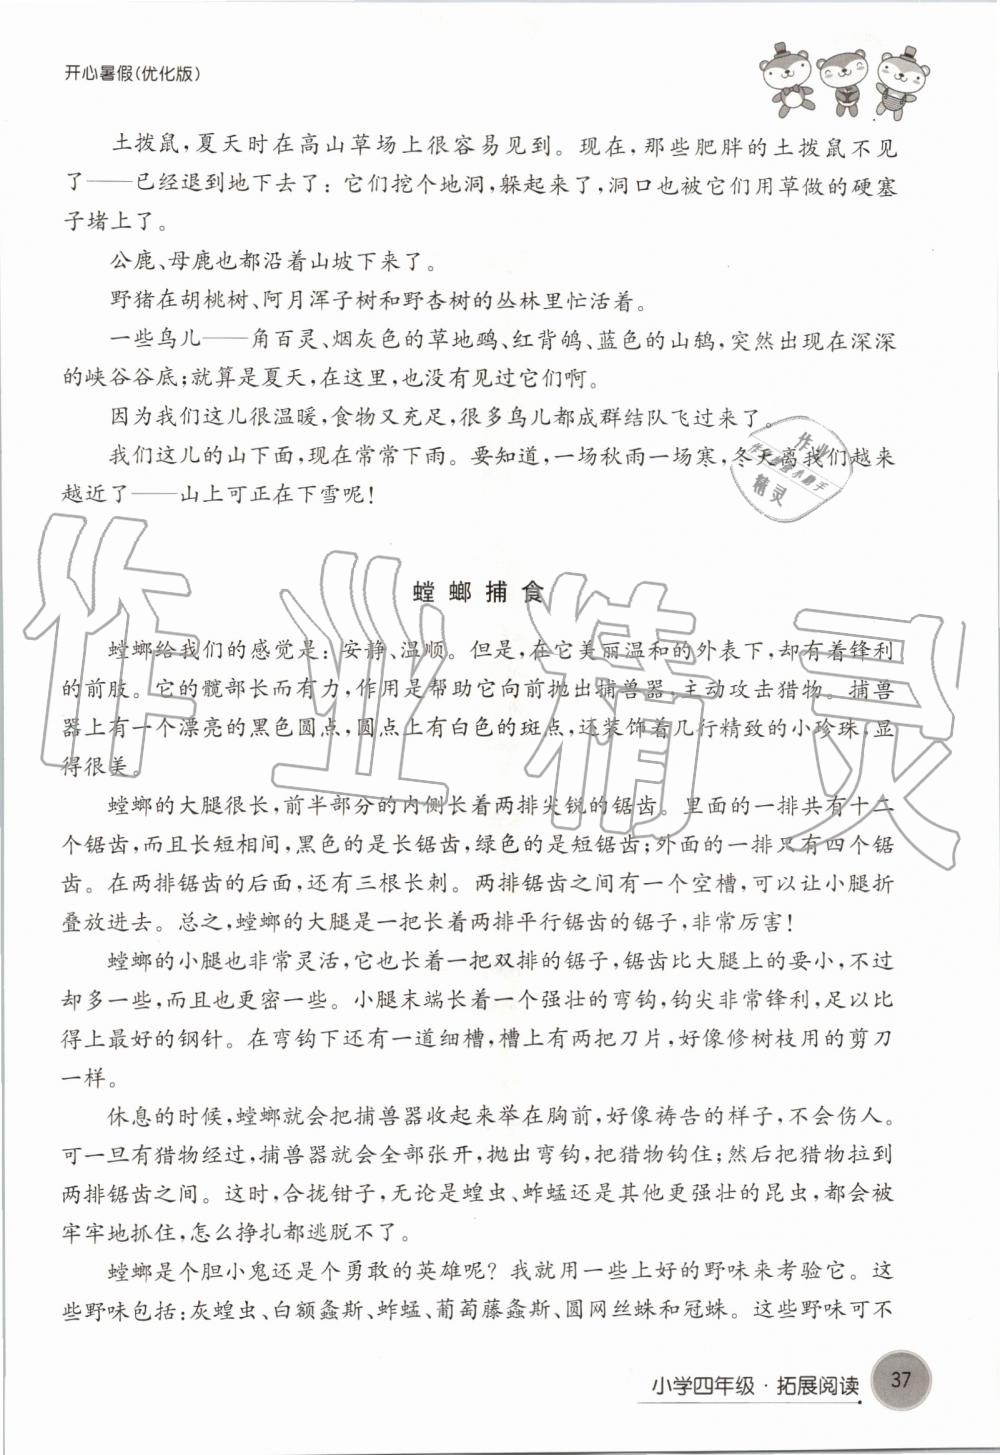 开心暑假(优化版)
土拨鼠,夏天时在高山草场上很容易见到。现在,那些肥胖的土拨鼠不见
了——已经退到地下去了:它们挖个地洞,躲起来了,洞口也被它们用草做的硬塞
子堵上了。
公鹿、母鹿也都沿着山坡下来了。
野猪在胡桃树、阿月浑子树和野杏树的丛林里忙活着。
一些鸟儿——角百灵、烟灰色的草地鹀、红背鸲、蓝色的山鸫,突然出现在深深
的峡谷谷底;就算是夏天,在这里,也没有见过它们啊。
因为我们这儿很温暖,食物又充足,很多鸟儿都成群结队飞过来了。
我们这儿的山下面,现在常常下雨。要知道,一场秋雨一场寒,冬天离我们越来
越近了——山上可正在下雪呢!
螳螂捕食
螳螂给我们的感觉是:安静、温顺。但是,在它美丽温和的外表下,却有着锋利
的前肢。它的髋部长而有力,作用是帮助它向前抛出捕兽器,主动攻击猎物。捕兽
器上有一个漂亮的黑色圆点,圆点上有白色的斑点,还装饰着几行精致的小珍珠,显
得很美。
螳螂的大腿很长,前半部分的内侧长着两排尖锐的锯齿。里面的一排共有十二
个锯齿,而且长短相间,黑色的是长锯齿,绿色的是短锯齿;外面的一排只有四个锯
齿。在两排锯齿的后面,还有三根长刺。两排锯齿之间有一个空槽,可以让小腿折
叠放进去。总之,螳螂的大腿是一把长着两排平行锯齿的锯子,非常厉害!
螳螂的小腿也非常灵活,它也长着一把双排的锯子,锯齿比大腿上的要小,不过
却多一些,而且也更密一些。小腿末端长着一个强壮的弯钩,钩尖非常锋利,足以比
得上最好的钢针。在弯钩下还有一道细槽,槽上有两把刀片,好像修树枝用的剪刀
一样。
休息的时候,螳螂就会把捕兽器收起来举在胸前,好像祷告的样子,不会伤人。
可一旦有猎物经过,捕兽器就会全部张开,抛出弯钩,把猎物钩住;然后把猎物拉到
两排锯齿之间。这时,合拢钳子,无论是蝗虫、蚱蜢还是其他更强壮的昆虫,都会被
牢牢地抓住,怎么挣扎都逃脱不了。
螳螂是个胆小鬼还是个勇敢的英雄呢?我就用一些上好的野味来考验它。这
些野味包括:灰蝗虫、白额螽斯、蚱蜢、葡萄藤螽斯、圆网丝蛛和冠蛛。这些野味可不
小学四年级·拓展阅读
37
作业精灵
作业
精灵